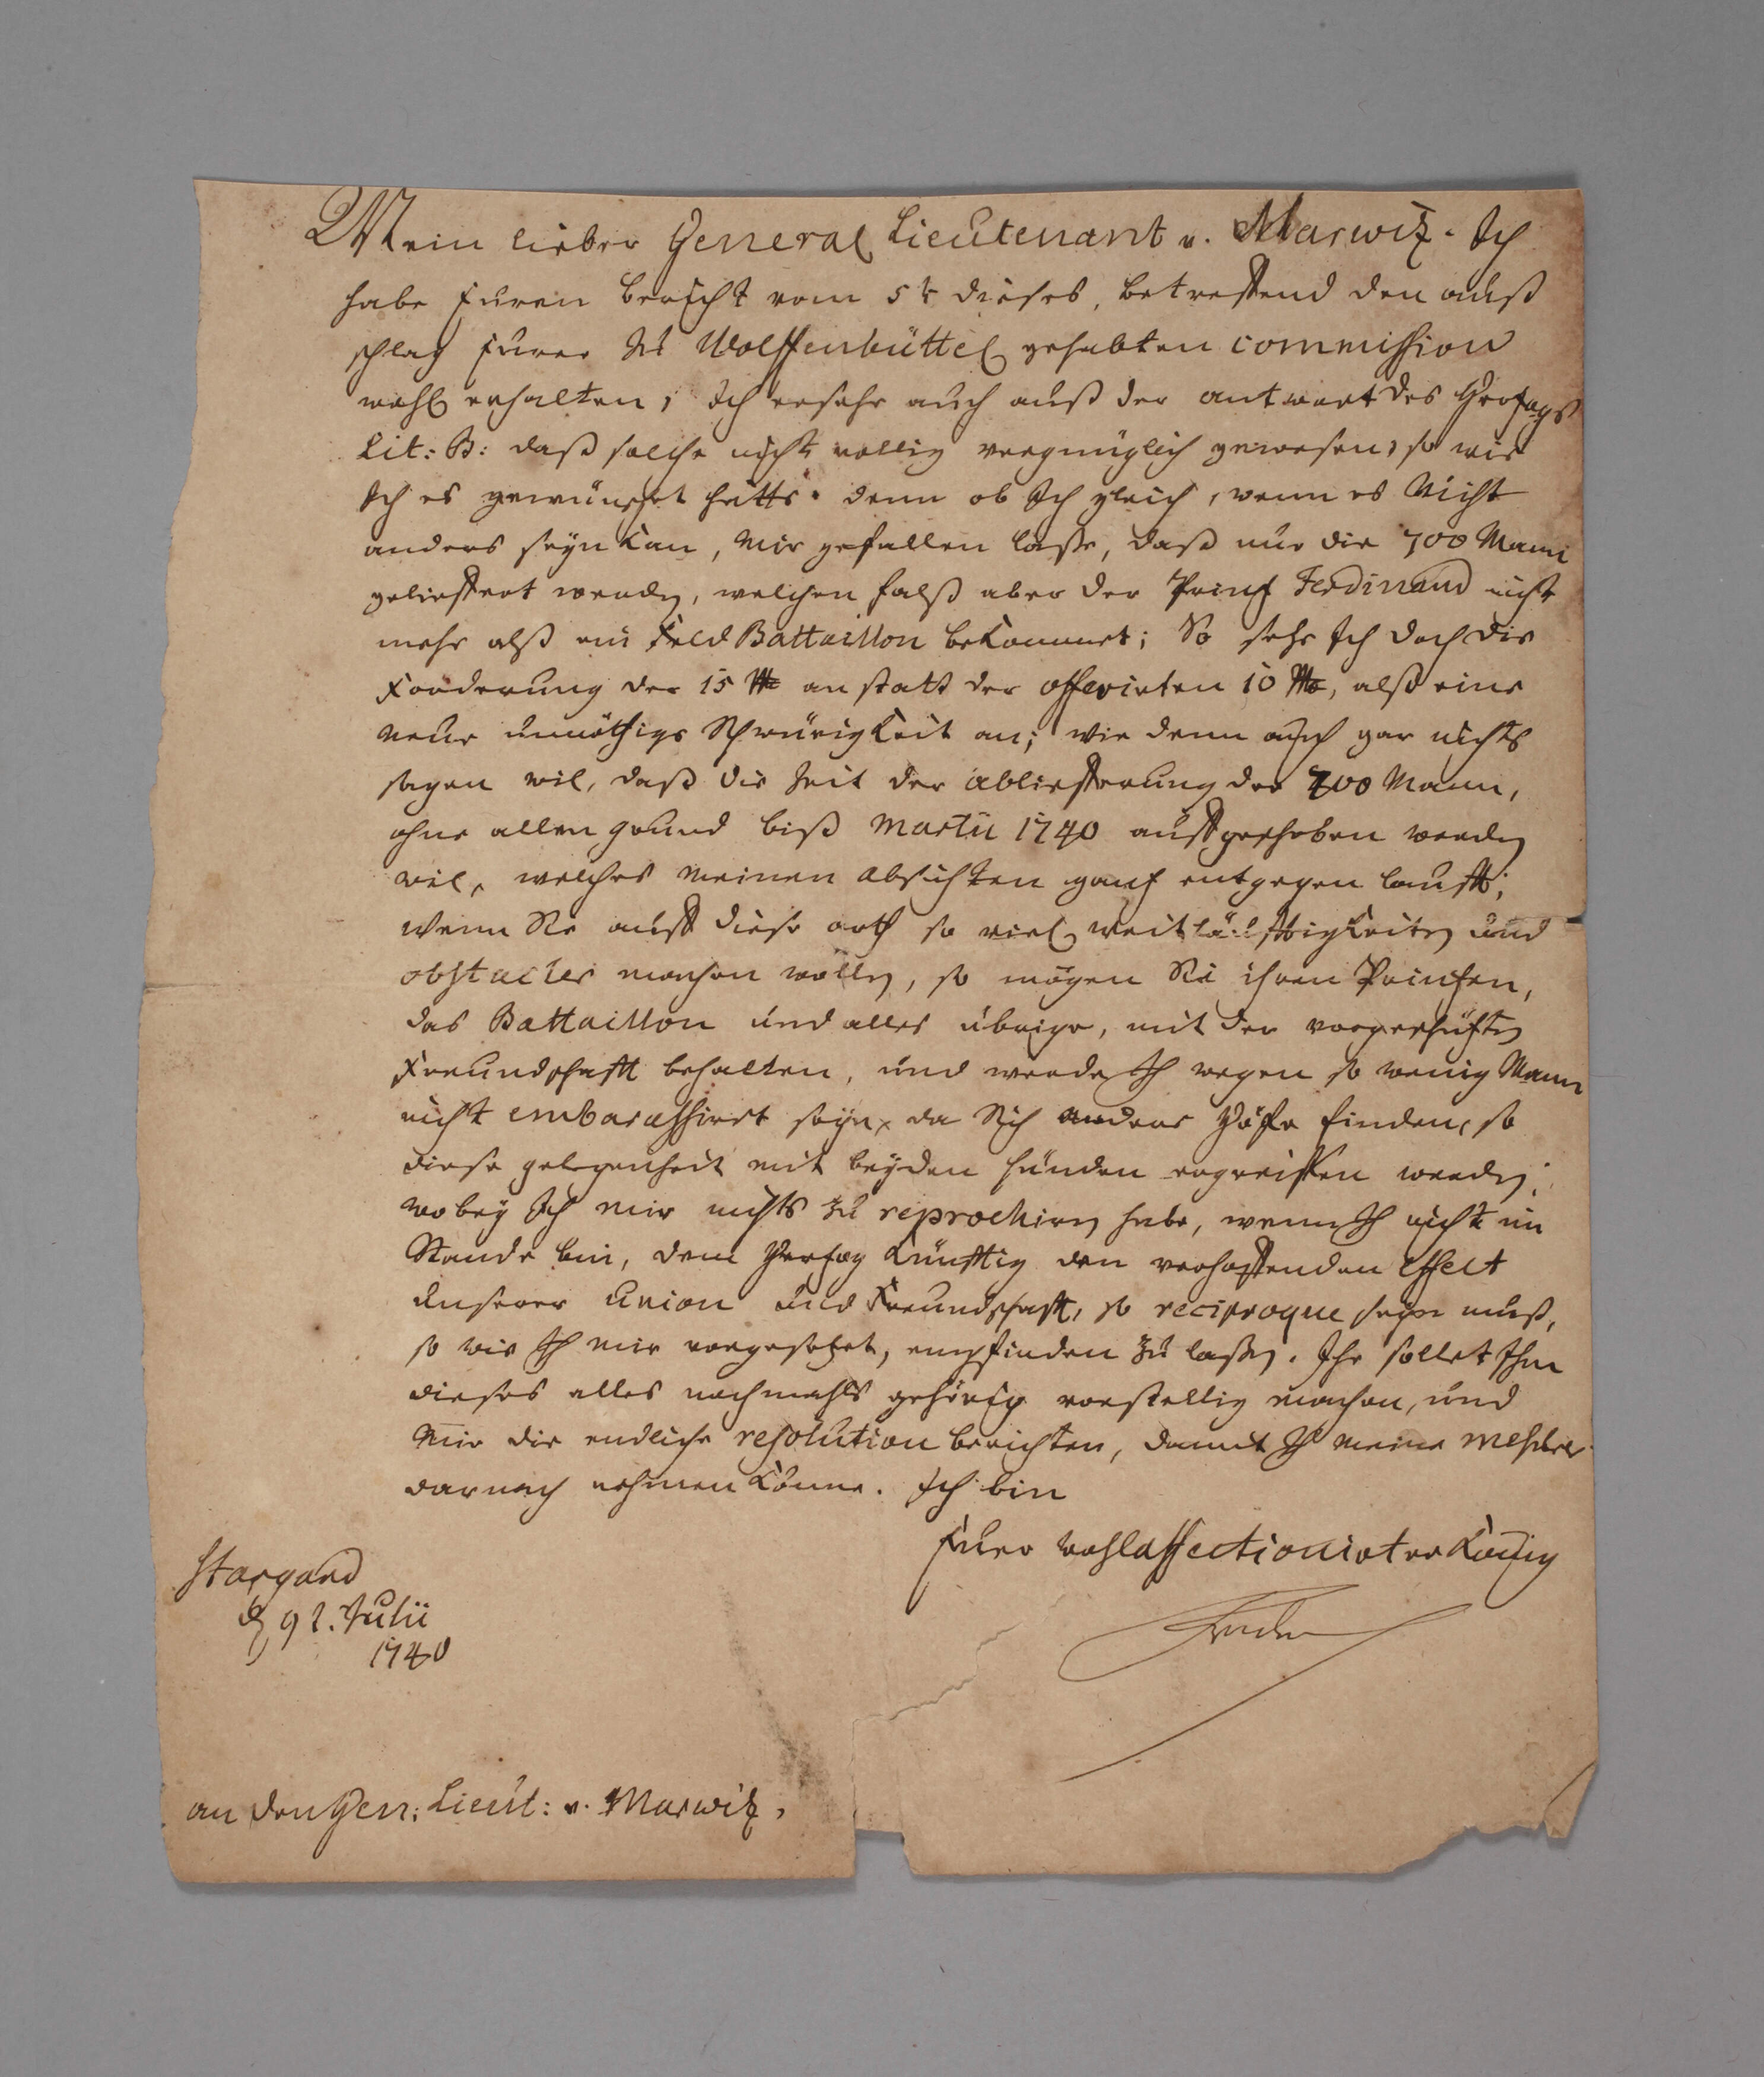 Mein lieber General Lieutenant v. Marwitz. Ich
habe Euren Bericht vom 5t dieses, betreffend den auß
schlag Eurer zu Wolffenbüttel gehabten commission
wohl erhalten; Ich ersehe auch auß der antwort des Hertzogs
Lit: B: daß solche nicht vollig vergnüglich gewesen, so wie
Ich es gewünschet hätte. denn ob Ich gleich, wenn es Nicht
anders seyn kan, Mir gefallen laße, daß nur die 700 Mann
geliefert werden, welchen falß aber der Printz Ferdinand nicht
mehr alß ein Feld Battaillon bekommet; So sehe Ich doch die
Forderung der 15 anstatt der offerirten 10, alß eine
neue unnöthige Schwürigkeit an; Wie denn auch gar nichts
sagen wil, daß die Zeit der ablieferung der 700 Mann,
ohne allen grund biß Martii 1740 auffgeschoben werden
wil, welches meinen absichten gantz entgegen laufft;
Wenn Sie auff diese arth so viel weitläufftigkeiten und
obstacles machen wollen, so mögen Sie ihren Printzen,
das Battaillon und alles übrige, mit der vorgeschützten
Freundschafft behalten, und werde Ich wegen so wenig Mann
nicht embarassirt seyn, da Sich andere Höfe finden, so
diese gelegenheit mit beyden händen ergreiffen werden;
wobey Ich mir nichts zu reprochiren habe, wenn Ich nicht im
Stande bin, dem Hertzog künfftig den verhoffenden Effect
unserer union und Freundschafft, so reciproque seyn muß,
so wie Ich mir vorgesetzet, empfinden zu laßen. Ihr sollet Ihm
dieses alles nochmahls gehörig vorstellig machen, und
Mir die endliche resolution berichten, damit Ich meine mesures
darnach nehmen könne. Ich bin
Euer wohlaffectionirter König
Stargard
d 9t. Julii
1740
an den Gen: Lieut: v. Marwitz,